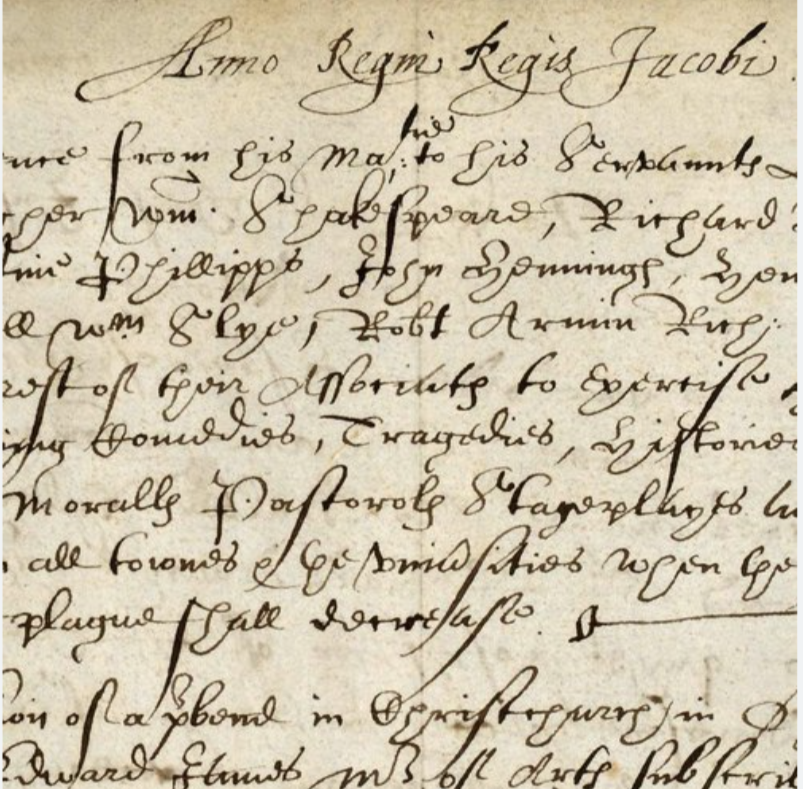 Anno Regni Regis Jacobi
ence from his Ma:tie to his Servaunts
cher Wm. Shakespeare, Richard
tine Phillipps, John Henningh, Hen
ll Wm Slye, Robt Armin Rich:
rest of their Associats to exercise
ing Comedies, Tragedies, Histories
Moralls Pastorols Stageplayes
all townes & he Vniūsities when the
plague shall decrease.
ion of a pbend in Christchurch in
Edward James Mr of Arts subscri